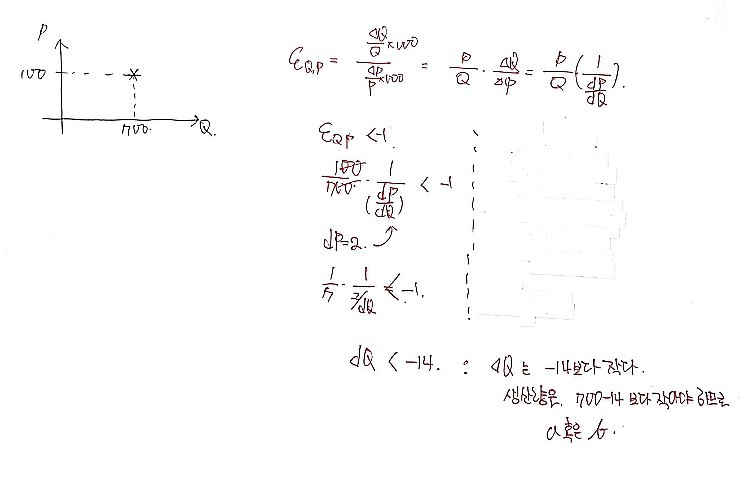 P
100
700.
Q.
εQP = (ΔQ/Q ×100)/(ΔP/P ×100) = P/Q · ΔQ/ΔP = P/Q (1/(dP/dQ)).
εQP < -1.
100/700 · 1/(dP/dQ) < -1
dP=2.
1/7 · 1/(2/dQ) < -1.
dQ < -14. : ΔQ는 -14보다 작다.
생산량은. 700-14 보다 작아야 하므로
a 혹은 b.